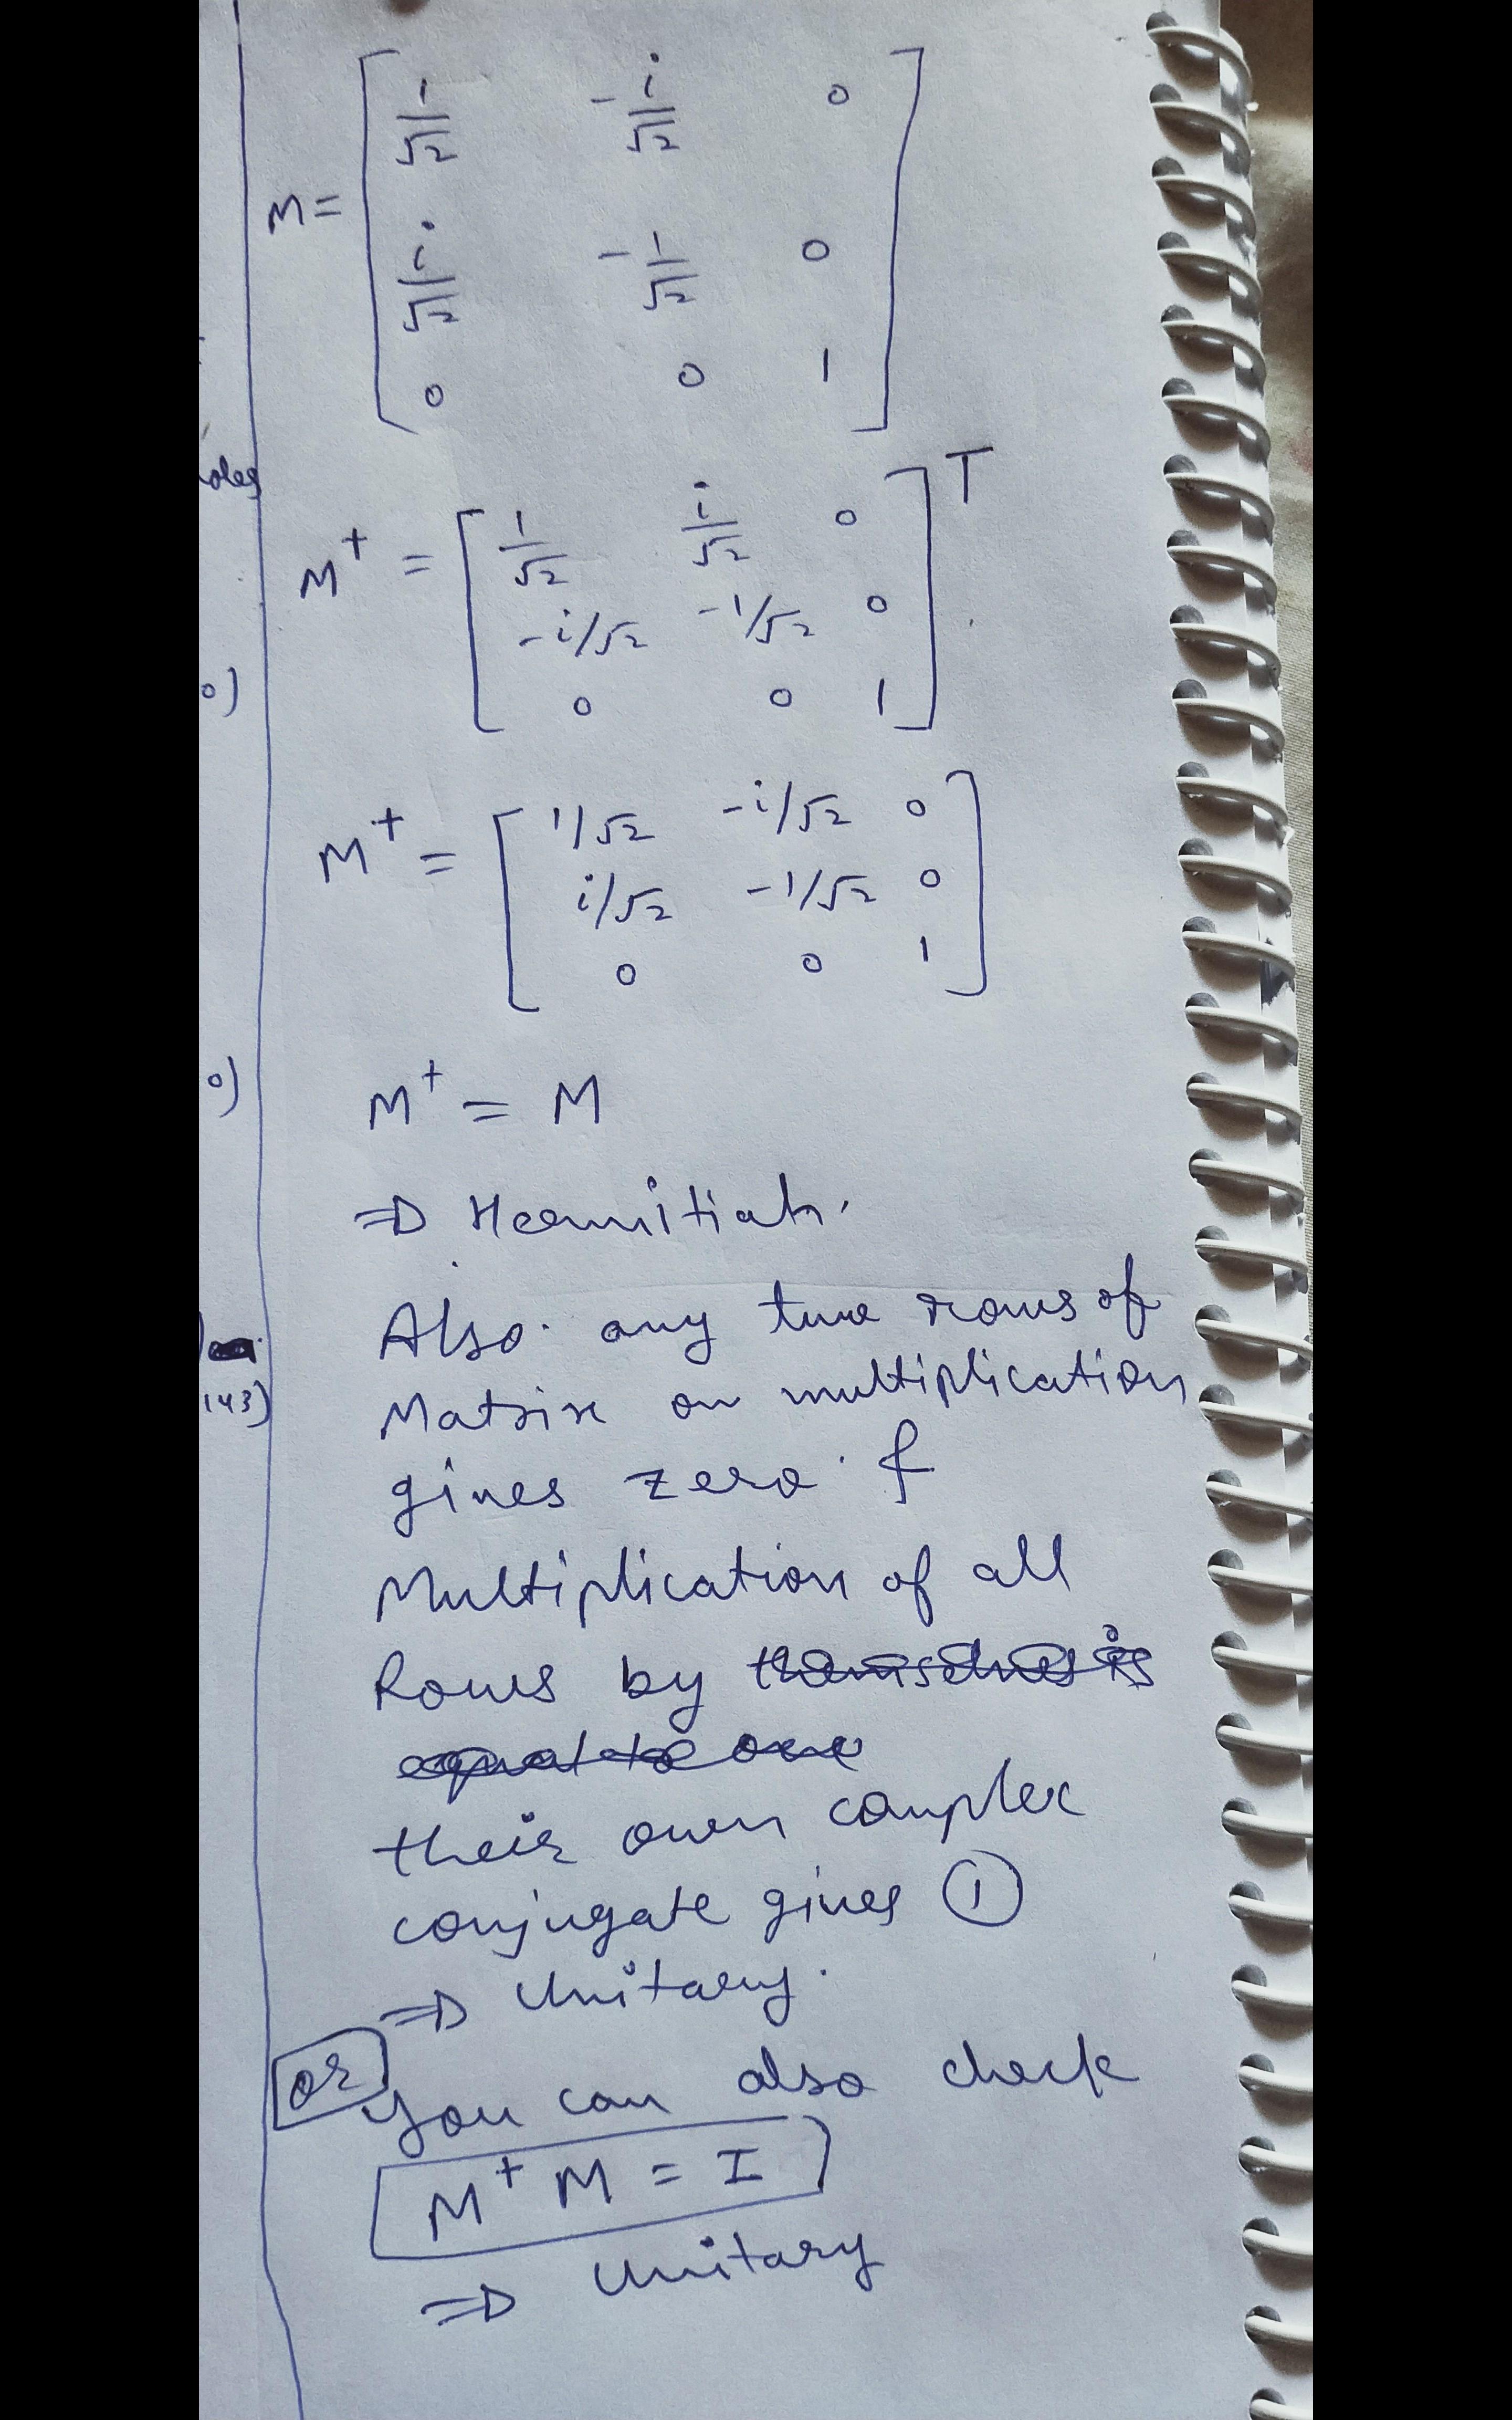 M = [ 1/√2 -i/√2 0
i/√2 -1/√2 0
0 0 1 ]
M⁺ = [ 1/√2 i/√2 0 ]ᵀ
-i/√2 -1/√2 0
0 0 1
M⁺ = [ 1/√2 -i/√2 0 ]
i/√2 -1/√2 0
0 0 1
M⁺ = M
⇒ Hermitian.
Also any two rows of
Matrix on multiplication
gives zero. &
Multiplication of all
Rows by themselves is
equal to one
their own complex
conjugate gives ①
⇒ Unitary.
or you can also check
M⁺ M = I
⇒ Unitary
oles
0)
0)
143)